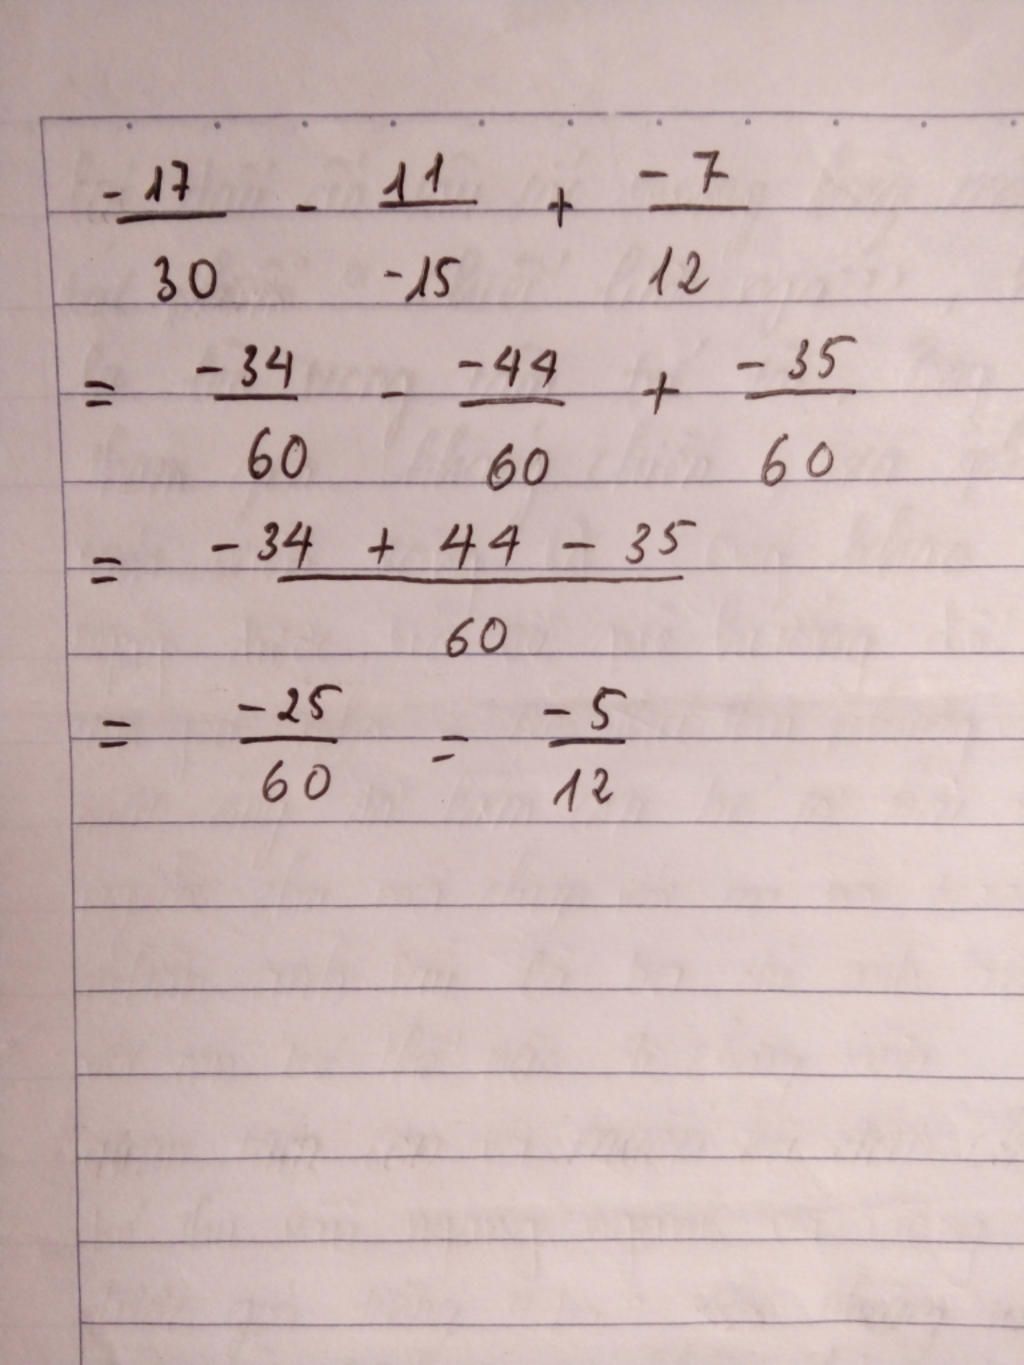 -17/30 - 11/-15 + -7/12
= -34/60 - -44/60 + -35/60
= -34 + 44 - 35/60
= -25/60 = -5/12